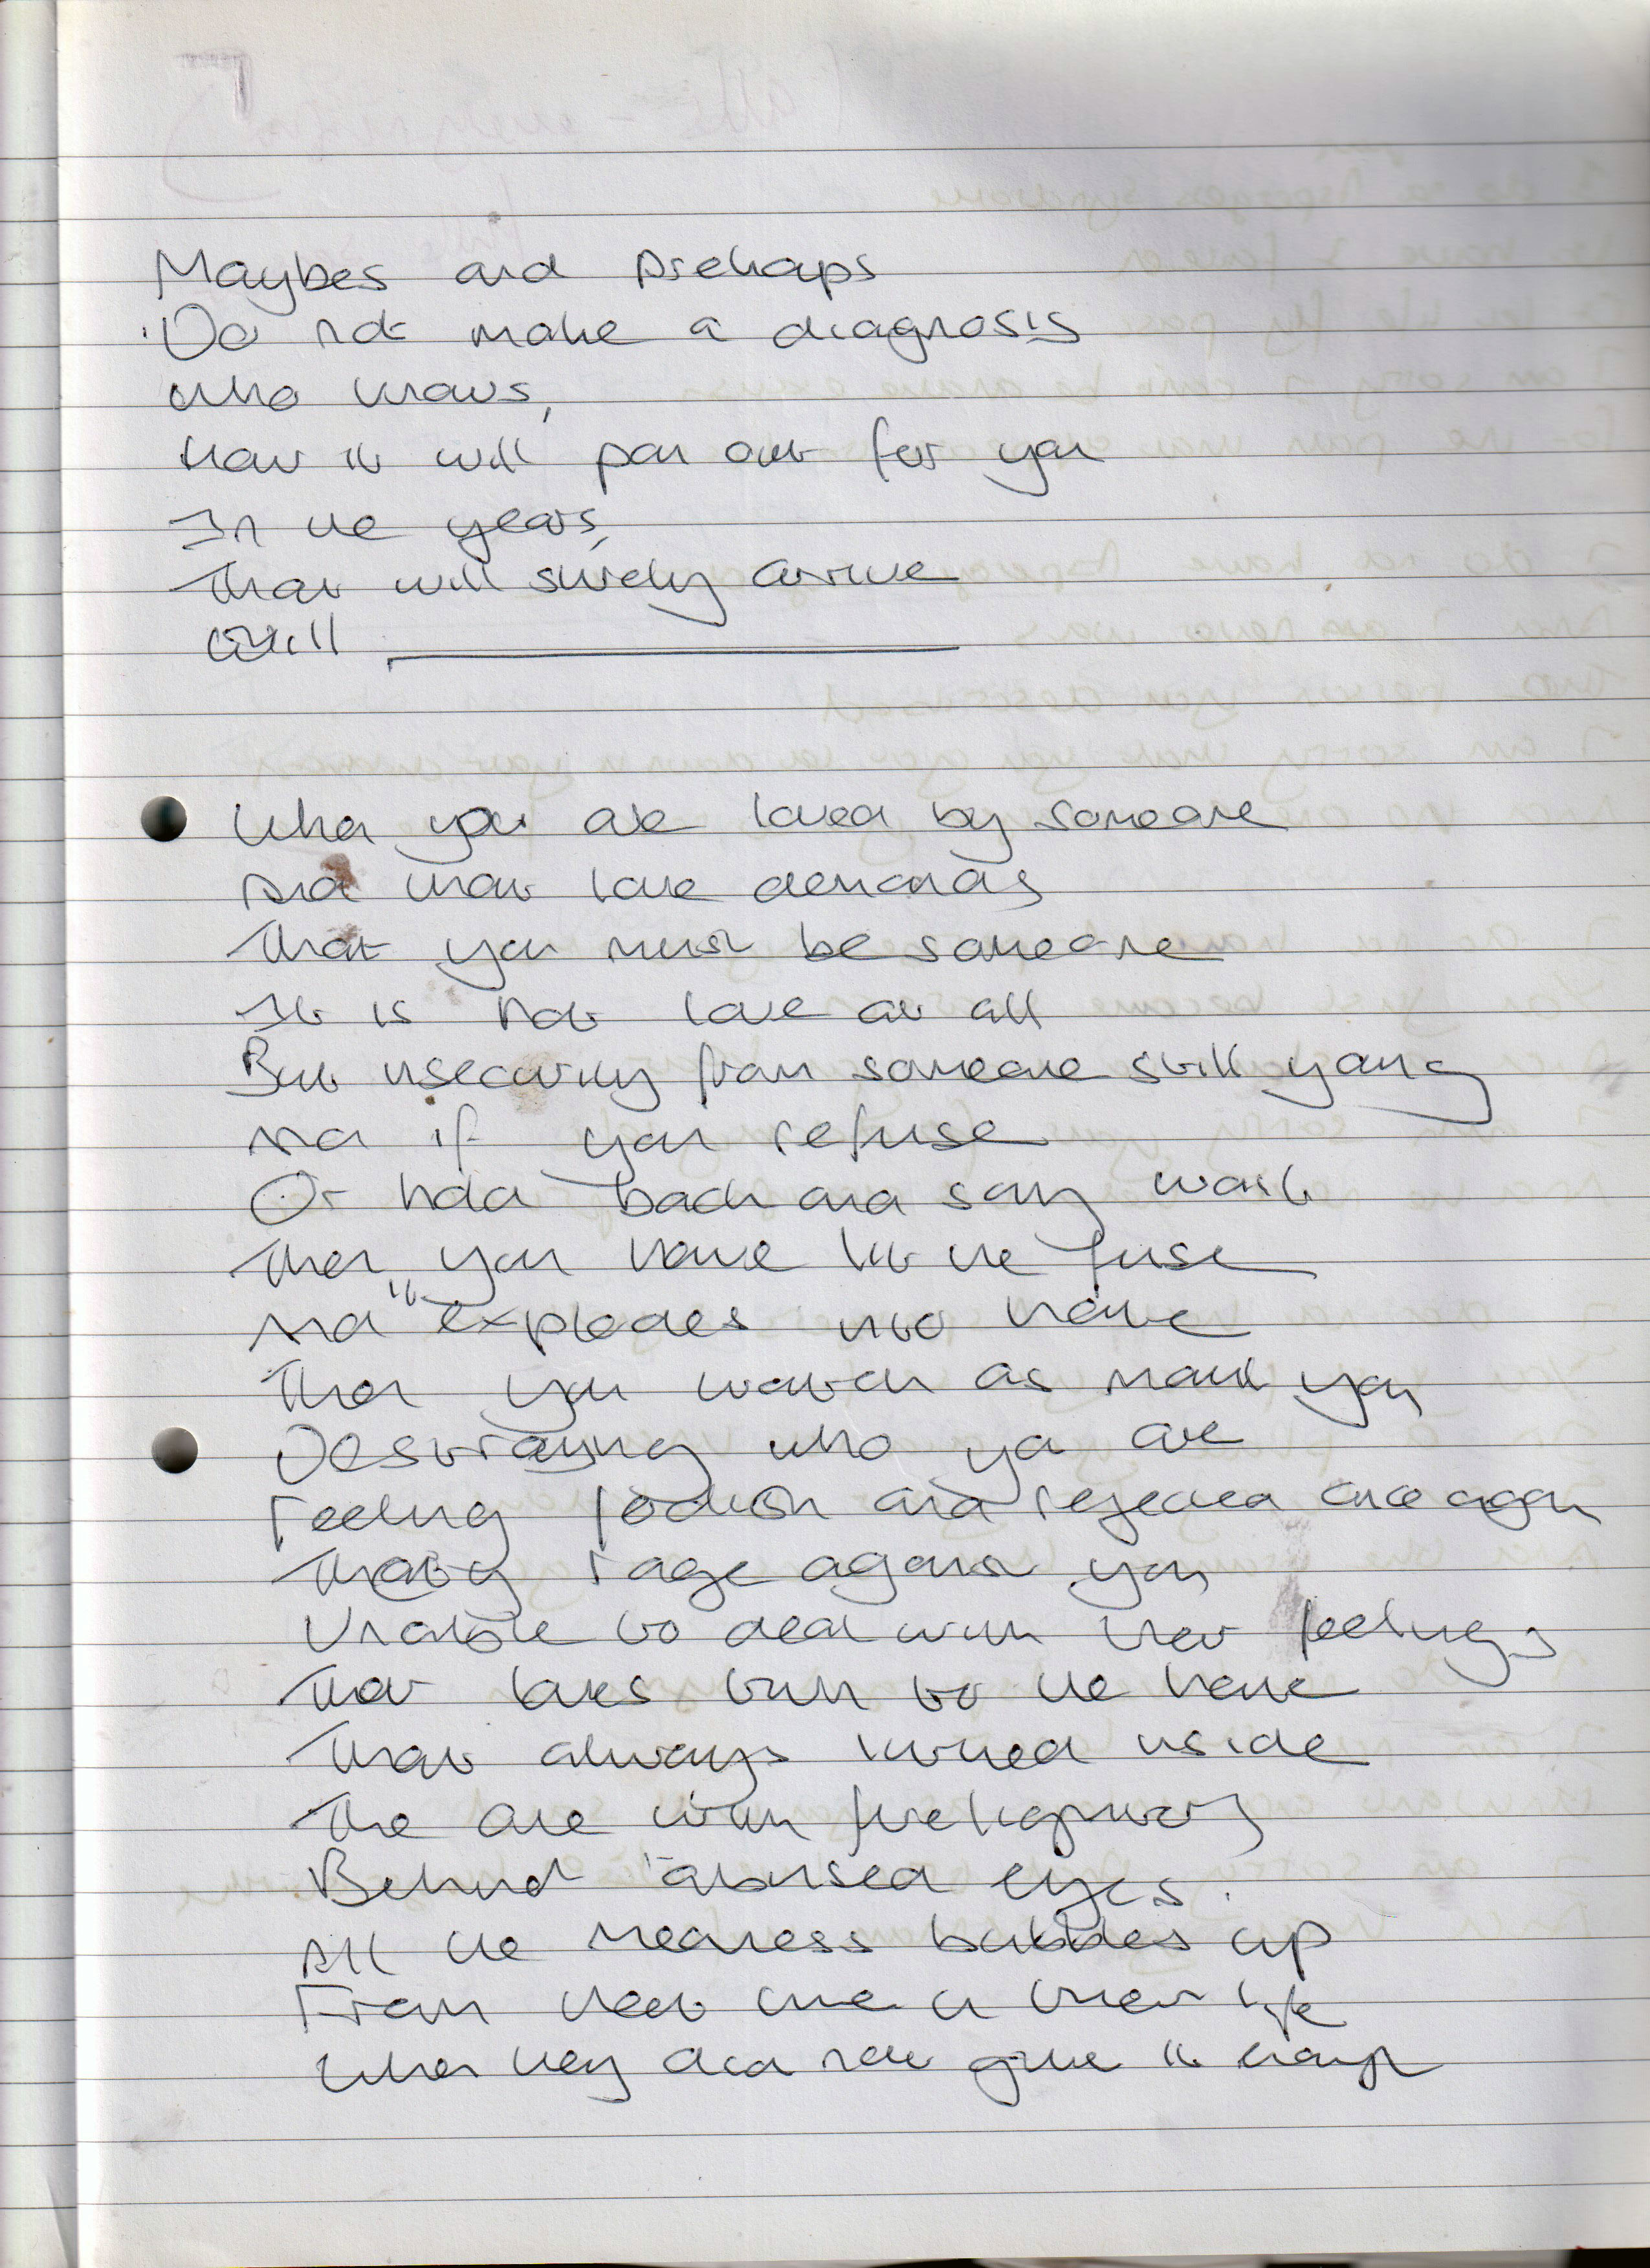 Maybes and prehaps
Do not make a diagnosis
Who knows,
How it will pan out for you
In the years,
That will surely arrive
Still
When you are loved by someone
And that love demands
That you must be someone
It is not love at all
But insecurity from someone still young
And if you refuse
Or hold back and say wait
Then you have lit the fuse
And it explodes into hate
Then you watch as they
Destroying who you are
Feeling foolish and rejected once again
They rage against you
Unable to deal with their feelings
That turn to the hate
That always burned inside
The one with
Behind abused eyes.
All the meanness bubbles up
From that time in their life
When they did not give it